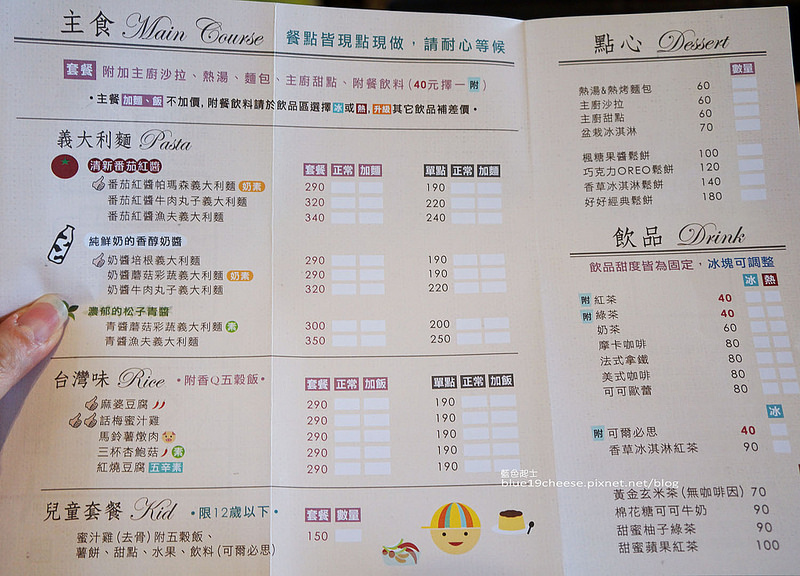 主食 Main Course 餐點皆現點現做，請耐心等候
套餐 附加主廚沙拉、熱湯、麵包、主廚甜點、附餐飲料(40元擇一 附)
•主餐 加麵、飯 不加價, 附餐飲料請於飲品區選擇 冰 或 熱, 升級 其它飲品補差價•
義大利麵 Pasta
清新番茄紅醬 套餐 正常 加麵 單點 正常 加麵
番茄紅醬帕瑪森義大利麵 奶素 290 190
番茄紅醬牛肉丸子義大利麵 320 220
番茄紅醬漁夫義大利麵 340 240
純鮮奶的香醇奶醬
奶醬培根義大利麵 290 190
奶醬蘑菇彩蔬義大利麵 奶素 290 190
奶醬牛肉丸子義大利麵 320 220
濃郁的松子青醬
青醬蘑菇彩蔬義大利麵 素 300 200
青醬漁夫義大利麵 350 250
台灣味 Rice •附香Q五穀飯• 套餐 正常 加飯 單點 正常 加飯
麻婆豆腐 290 190
話梅蜜汁雞 290 190
馬鈴薯燉肉 290 190
三杯杏鮑菇 素 290 190
紅燒豆腐 五辛素 290 190
兒童套餐 Kid •限12歲以下• 套餐 數量
蜜汁雞(去骨)附五穀飯、 150
薯餅、甜點、水果、飲料(可爾必思)
點心 Dessert
數量
熱湯&熱烤麵包 60
主廚沙拉 60
主廚甜點 60
盆栽冰淇淋 70
楓糖果醬鬆餅 100
巧克力OREO鬆餅 120
香草冰淇淋鬆餅 140
好好經典鬆餅 180
飲品 Drink
飲品甜度皆為固定，冰塊可調整
冰 熱
附 紅茶 40
附 綠茶 40
奶茶 60
摩卡咖啡 80
法式拿鐵 80
美式咖啡 80
可可歐蕾 80
冰
附 可爾必思 40
香草冰淇淋紅茶 90
黃金玄米茶(無咖啡因) 70
棉花糖可可牛奶 90
甜蜜柚子綠茶 90
甜蜜蘋果紅茶 100
藍色起士
blue19cheese.pixnet.net/blog